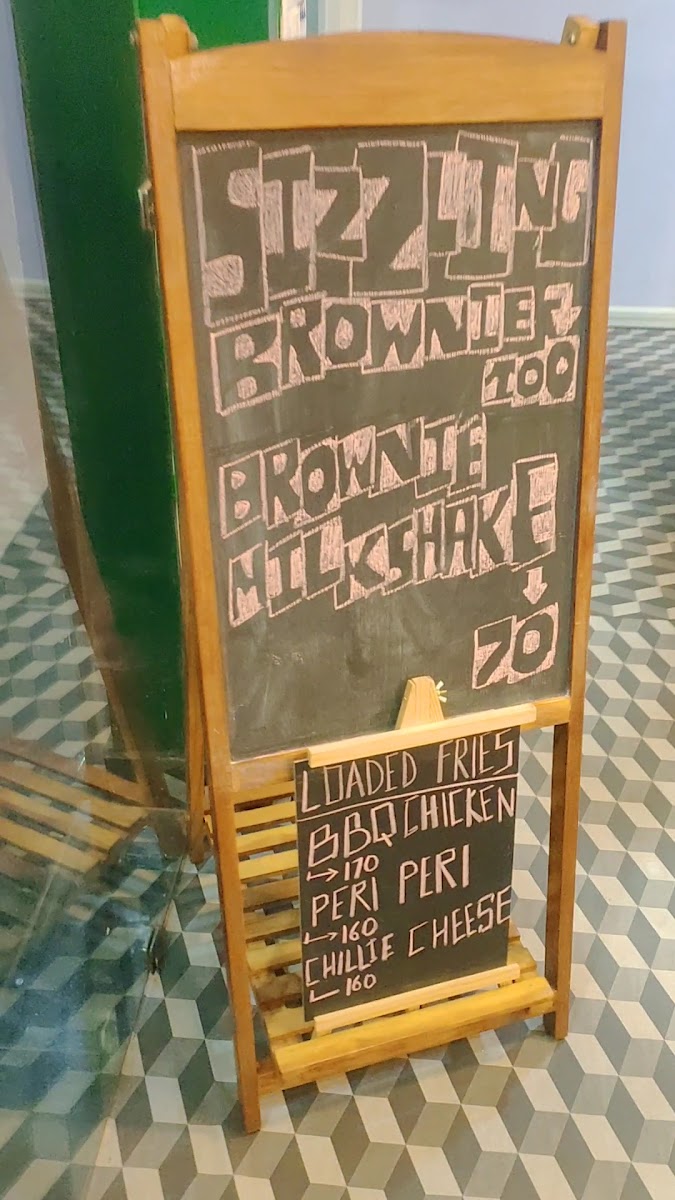 SIZZLING
BROWNIE
100
BROWNIE
MILKSHAKE
70
LOADED FRIES
BBQ CHICKEN
→170
PERI PERI
→160
CHILLIE CHEESE
160